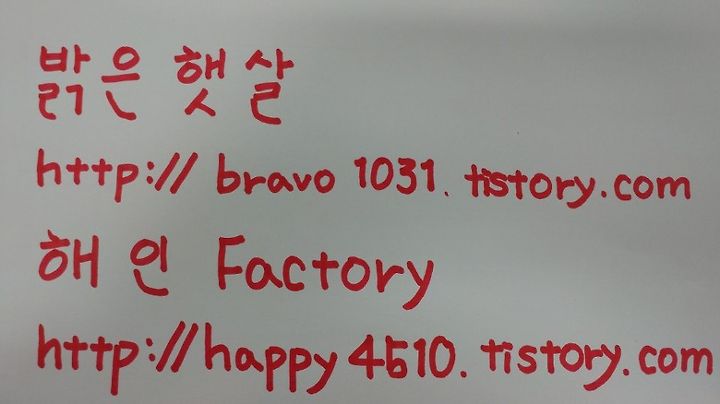 밝은 햇살
http://bravo1031.tistory.com
해인 Factory
http://happy4510.tistory.com